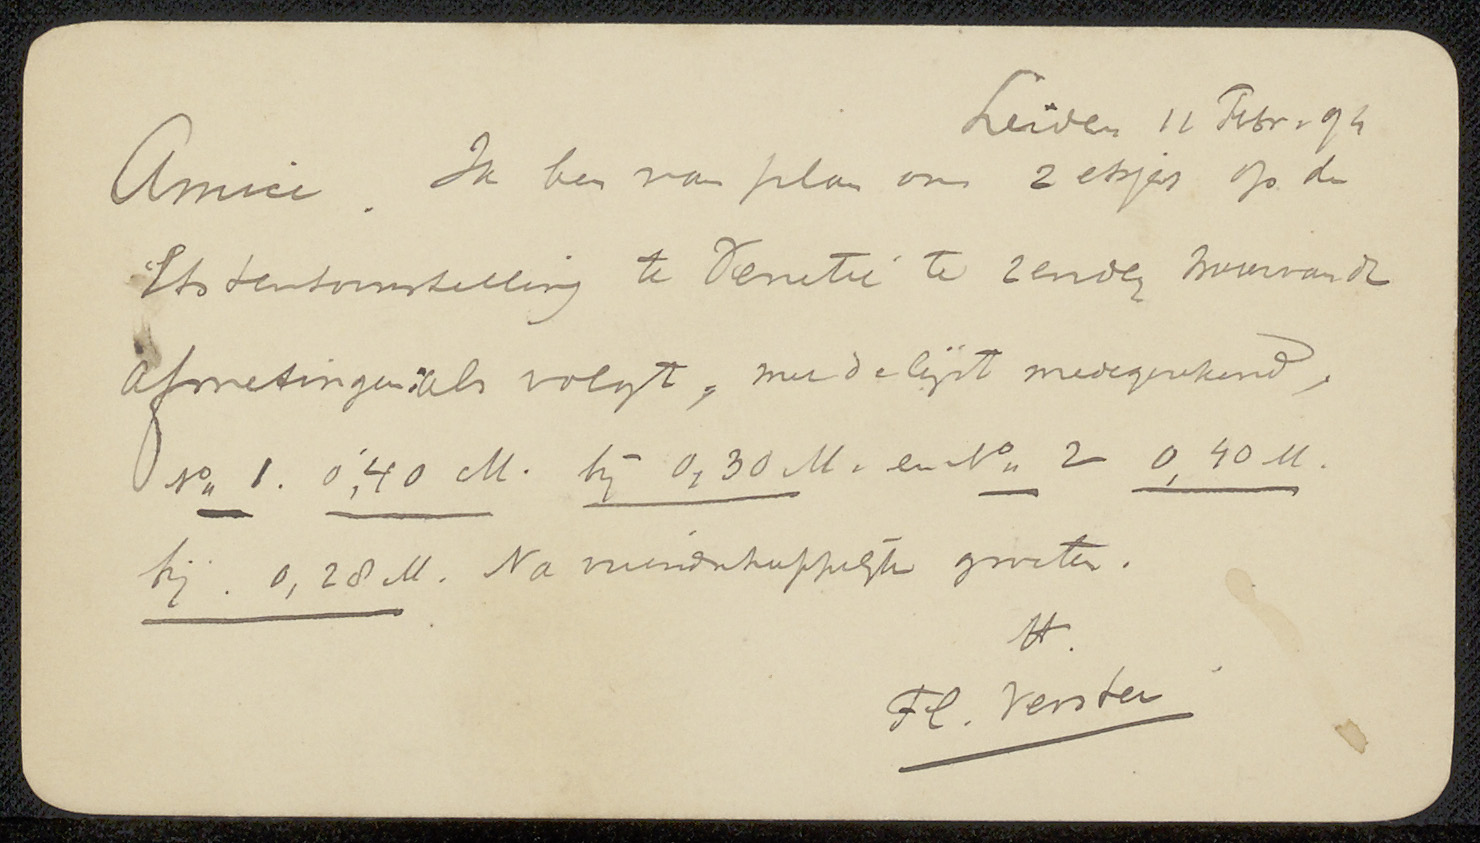 Leiden 11 Febr. 94
Amice. Ik ben van plan om 2 etsjes op de
Etstentoonstelling te Venetië te zenden waarvan de
afmetingen als volgt, met de lijst medegerekend,
No. 1. 0,40 M. bij 0,30 M. en No. 2 0,40 M.
bij. 0,28 M. Na vriendschappelijke groeten.
tt.
Fl. Verster